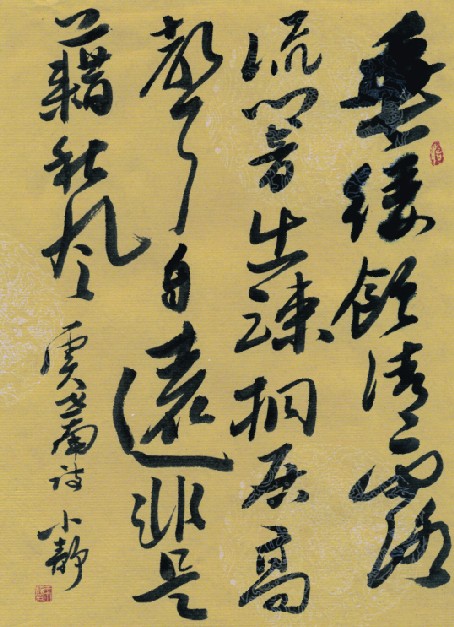 垂緌飲清露
流響出疎桐居高
聲自遠非是
藉秋风
虞世南诗 小静